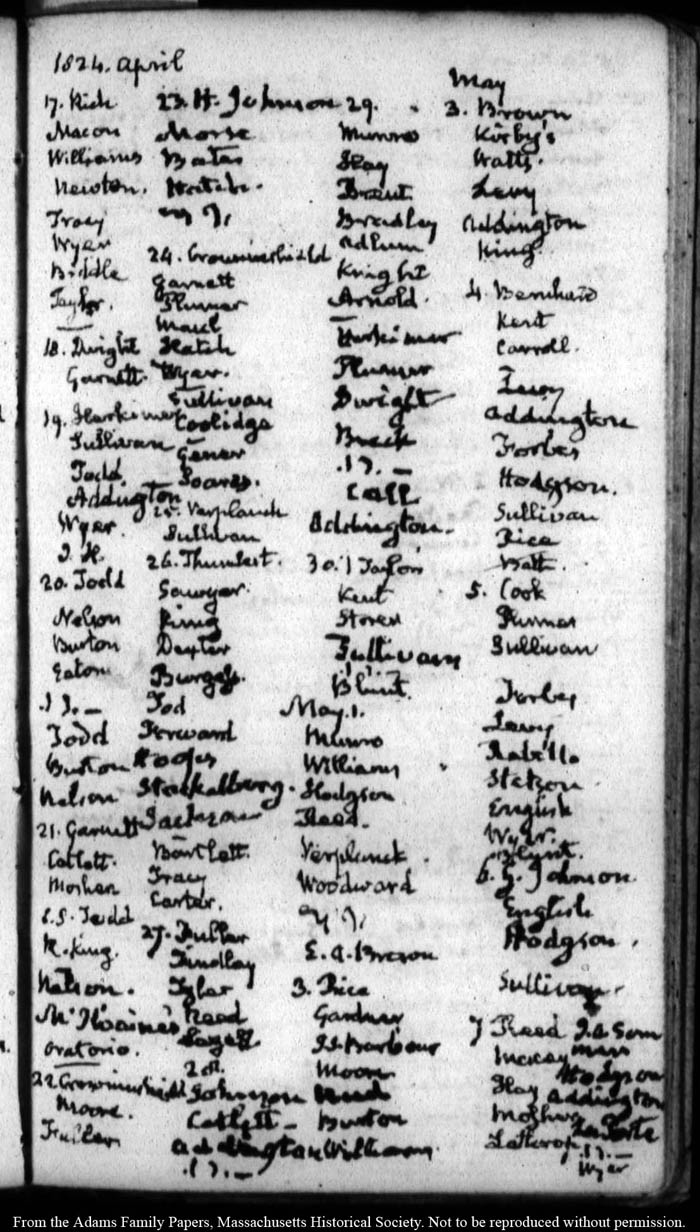 1824. April
17. Rich
Macon
Williams
Newton.
Tracy
Wyer
Biddle
Taylor.
18. Dwight
Garnett.
19. Herkimer
Sullivan
Todd.
Addington
Wyer.
20. Todd
Nelson
Burton
Eaton
Todd
Burton
Nelson
21. Garnett
Catlett.
Mosher
C.S. Todd
R. King.
Nelson.
Oratorio.
22. Crowninshield
Moore.
Fuller
23. H. Johnson
Morse
Bates
Hatch.
24. Crowninshield
Garnett
Plumer
Hatch
Wyer.
Sullivan
Coolidge
25. Verplanck
Sullivan
26.
Sawyer.
King
Dexter
Burgess.
Tod
Forward
Hooper
Stackelberg.
Jackson
Bartlett.
Tracy
Carter.
27. Fuller
Findlay
Tyler
Reed
Johnson
Catlett
Addington
29.
Munro
Hay
Brent
Bradley
Adlum
Knight
Arnold.
Herkimer
Plumer
Dwight
Breck
Call
Addington.
30. Taylor
Kent
Storer
Sullivan
Blunt.
May. 1.
Munro
Williams
Hodgson
Reed.
Verplanck.
Woodward
3. Rice
Gardner
Moore
Burton
Williams
May
3. Brown
Kirby's
Watts.
Levy
Addington
King.
4. Bernhard
Kent
Carroll.
Levy
Addington
Forbes
Hodgson.
Sullivan
Rice
Watt.
5. Cook
Plumer
Sullivan
Forbes
Levy
Rabello
Stetson
English
Wyer.
Blynt.
6. J. Johnson.
English
Hodgson.
Sullivan
7 Reed
McKay
Hay
Lathrop
Hodgson
Addington
Wyer
From the Adams Family Papers, Massachusetts Historical Society. Not to be reproduced without permission.